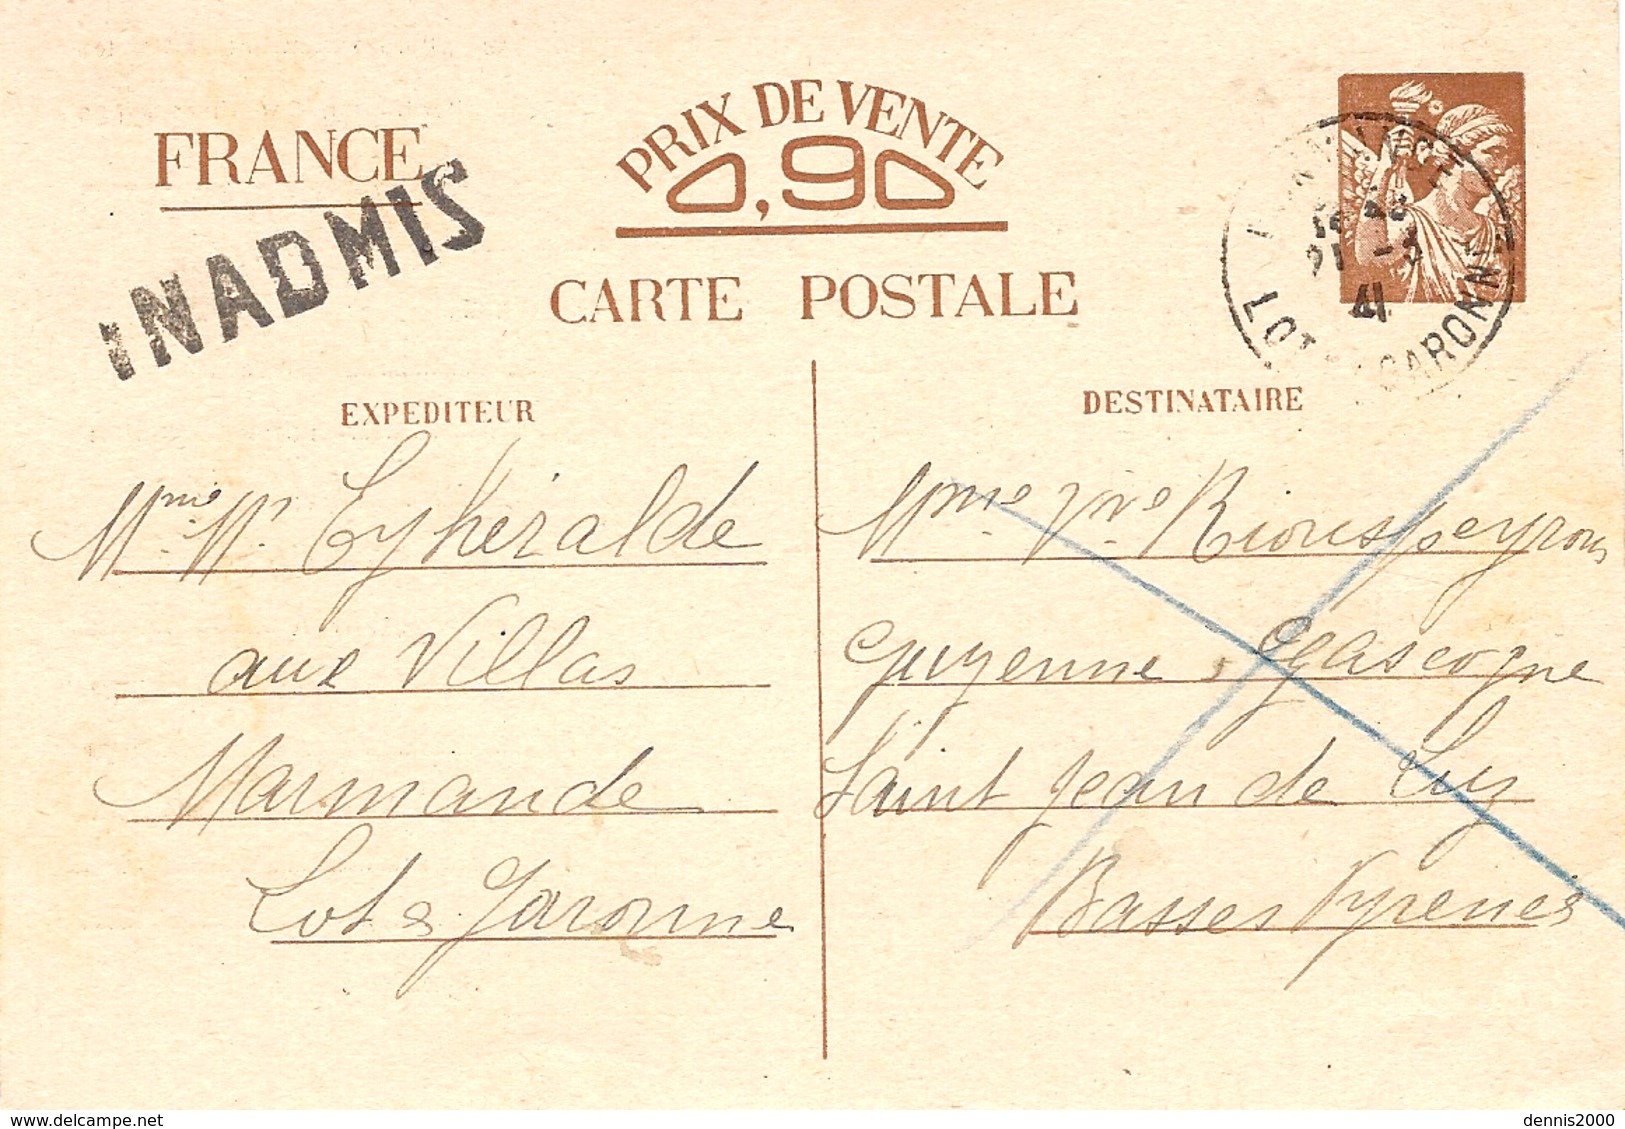 FRANCE
PRIX DE VENTE
0,90
INADMIS
CARTE POSTALE
LOT ET GARONNE
41
EXPEDITEUR
Mme Vve Eyheralde
aux Villas
Marmande
Lot & Garonne
DESTINATAIRE
Mme Vve Riouspeyrous
Guyenne & Gascogne
Saint Jean de Luz
Basses Pyrenées
delcampe.net
dennis2000